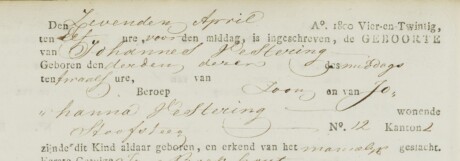 Den Zevenden April A°. 1800 Vier-en-Twintig,
ten Elf ure voor den middag, is ingeschreven, de GEBOORTE
van Johannes Vestering
Geboren den derden dezer des middags
ten twaalf ure, van
Beroep Zoon an van Jo-
hanna Vestering wonende
N°. 12 Kanton 2
zijnde dit Kind aldaar geboren, en erkend van het mannelijk geslacht.